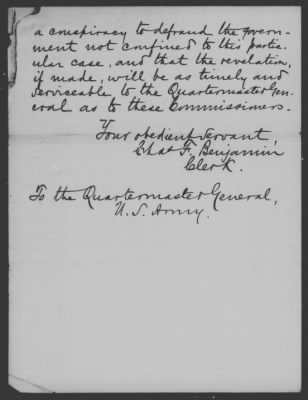 a conspiracy to defraud the govern-
ment not confined to this partic-
ular case, and that the revelation,
if made, will be as timely and
serviceable to the Quartermaster Gen-
eral as to these Commissioners.
Your obedient servant,
Chas F. Benjamin
Clerk.
To the Quartermaster General,
U.S. Army.